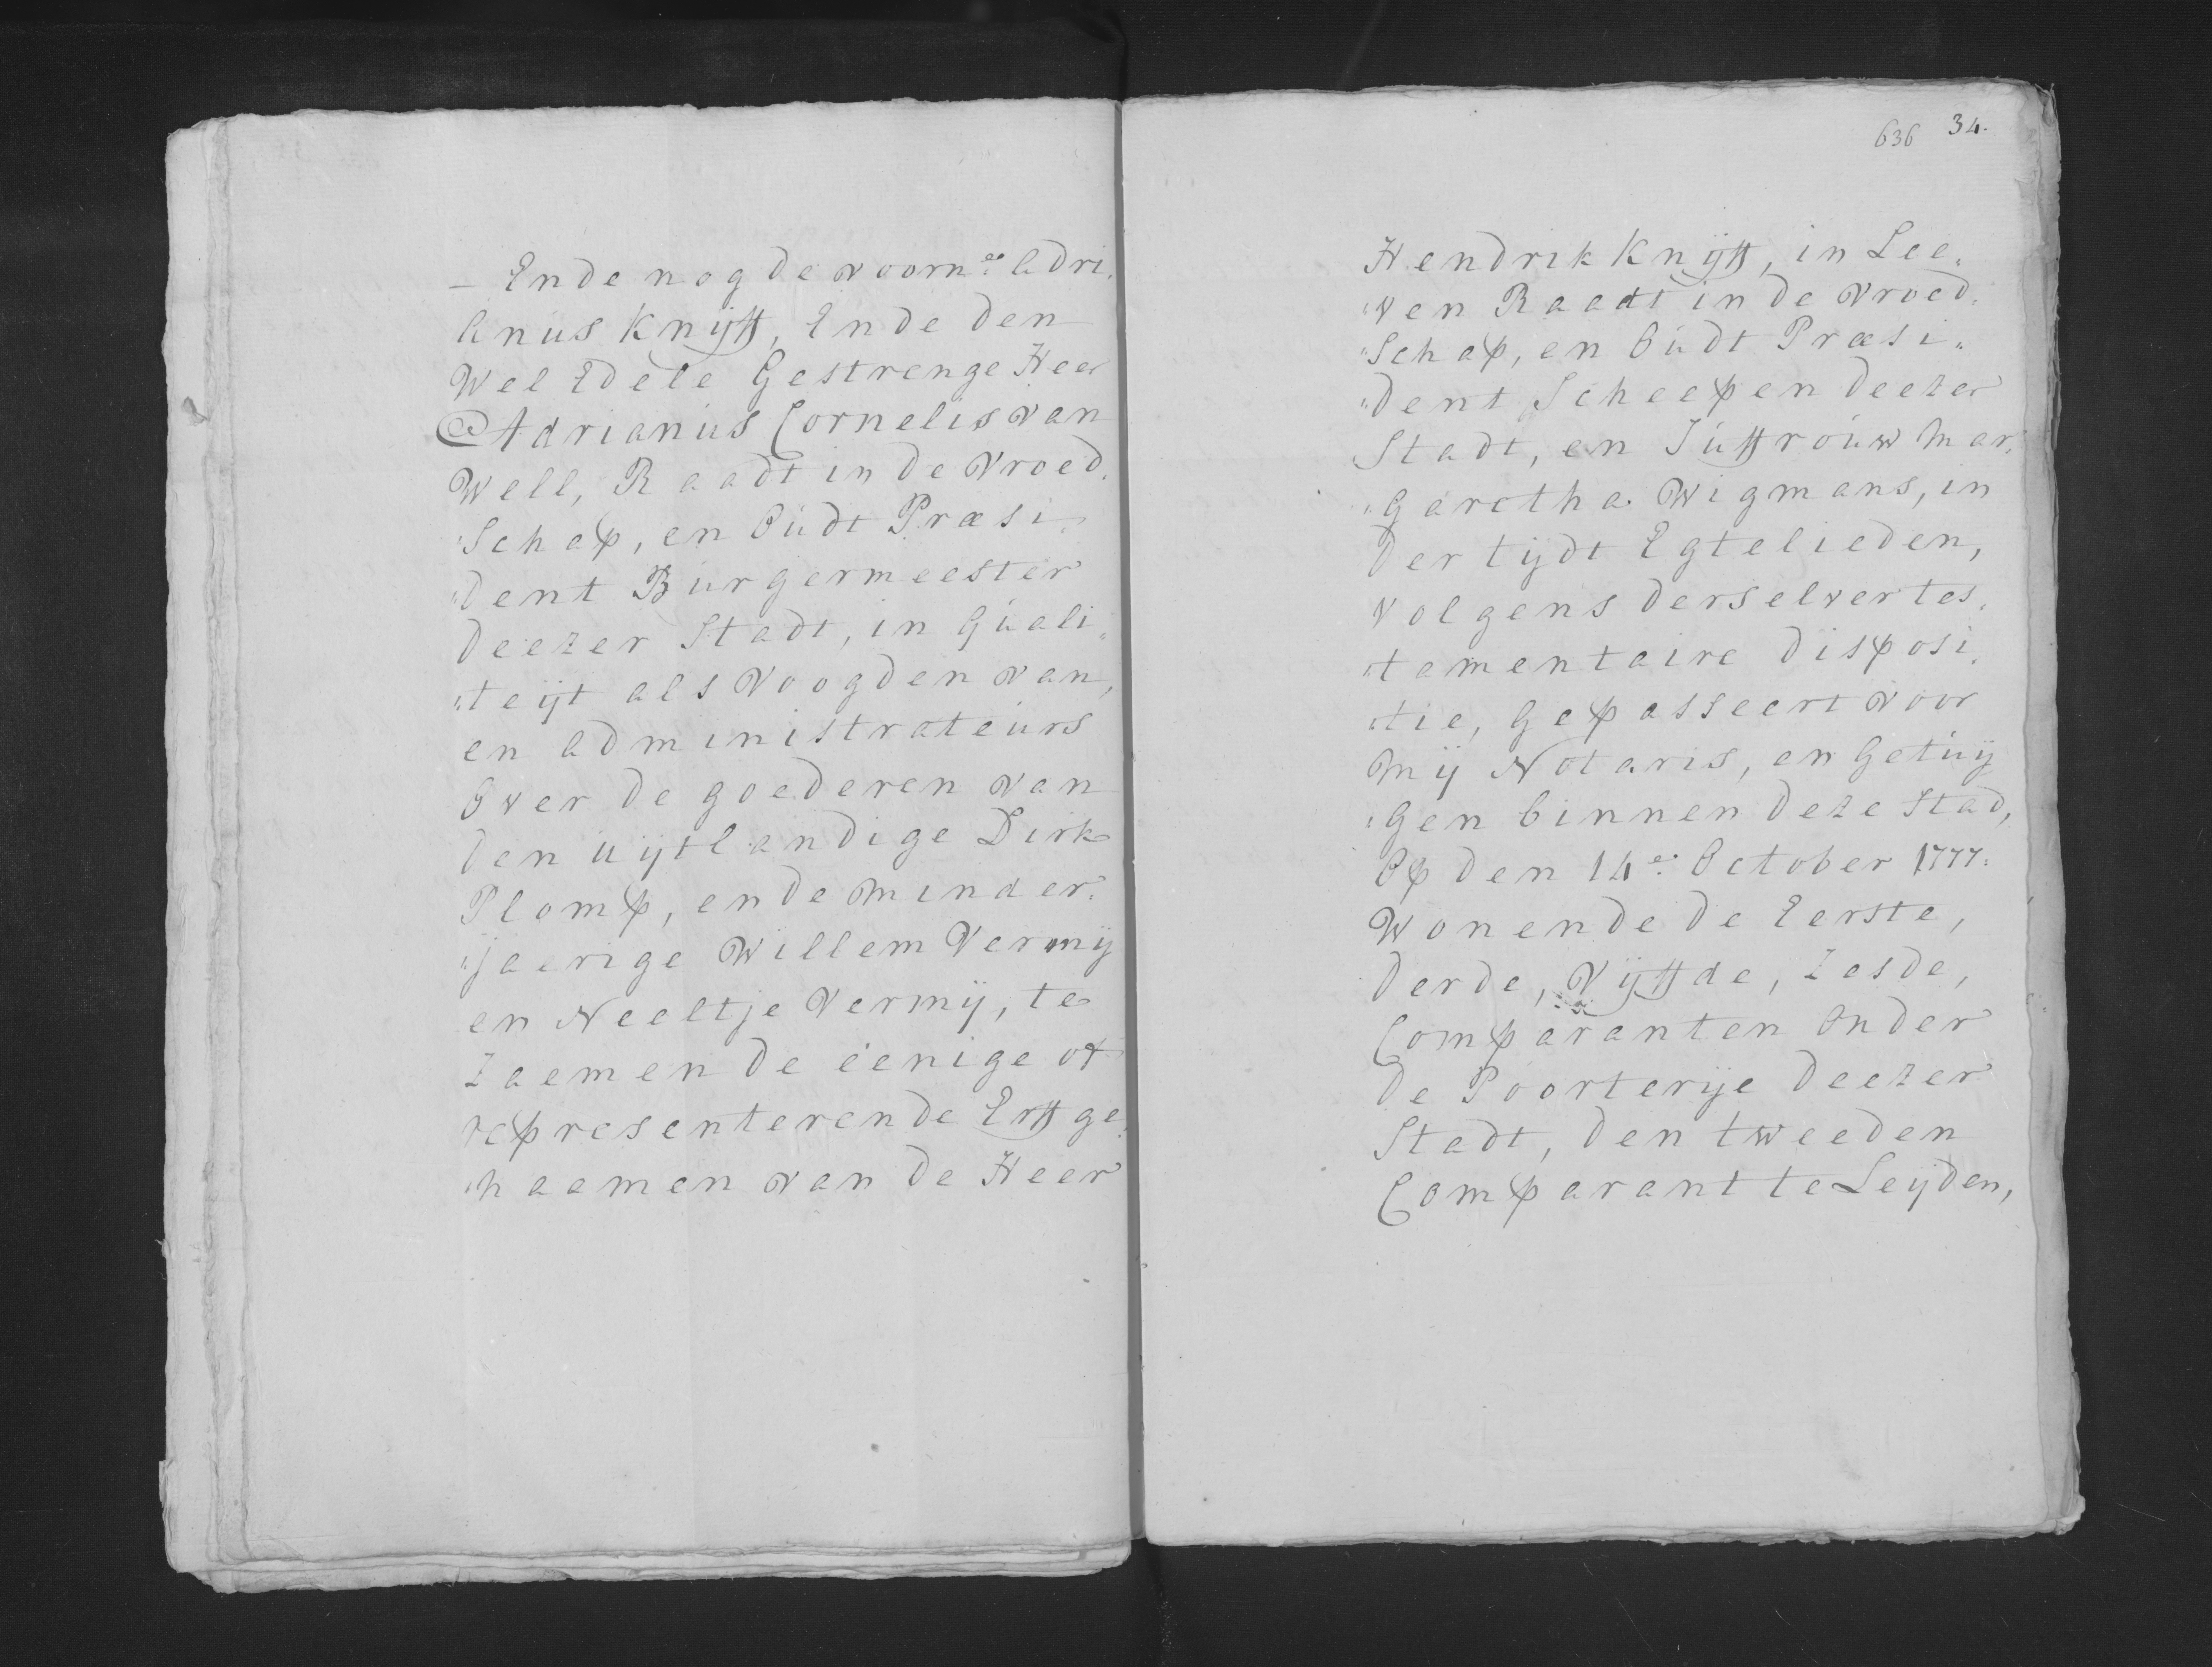 — Ende nog de voorn.e Adri„
Anus Knijff, Ende den
Wel Edele Gestrenge Heer
Adrianus Cornelis van
Well, Raadt in de Vroed„
„Schap, en Oudt Præsi„
„dent Burgermeester
deezer Stadt, in Quali„
„teijt als Voogden van,
en Administrateurs
Over de goederen van
den uijtlandige Dirk
Plomp, en de minder„
„jaerige Willem Vermij
en Neeltje Vermij, te
Zaemen de eenige of
representerende Erffge„
„naemen van de Heer
636 34.
Hendrik Knijff, in Lee„
„ven Raadt in de Vroed„
„Schap, en Oudt Præsi„
„dent Scheepen deezer
Stadt, en Juffrouw Mar„
„garetha Wigmans, in
der tijdt Egtelieden,
volgens derselver tes„
„tamentaire disposi„
„tie, Gepasseert voor
Mij Notaris, en Getuij
„gen binnen deze Stad,
Op den 14.e October 1777.
Wonende de Eerste,
derde, Vijffde, Zesde,
Comparanten Onder
de Poorterije deezer
Stadt, den tweeden
Comparant te Leijden,